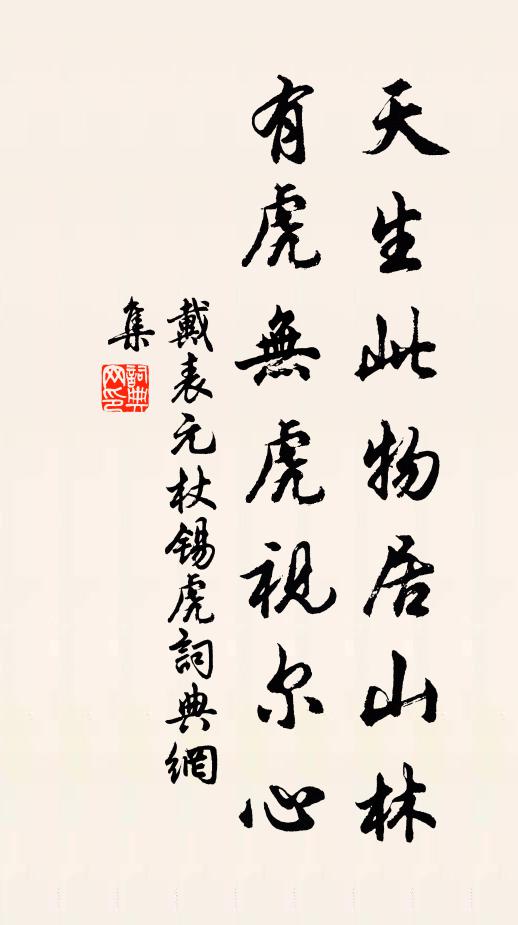 天生此物居山林
有虎無虎視尔心
戴表元杖锡虎詞典網
集
詞典网印